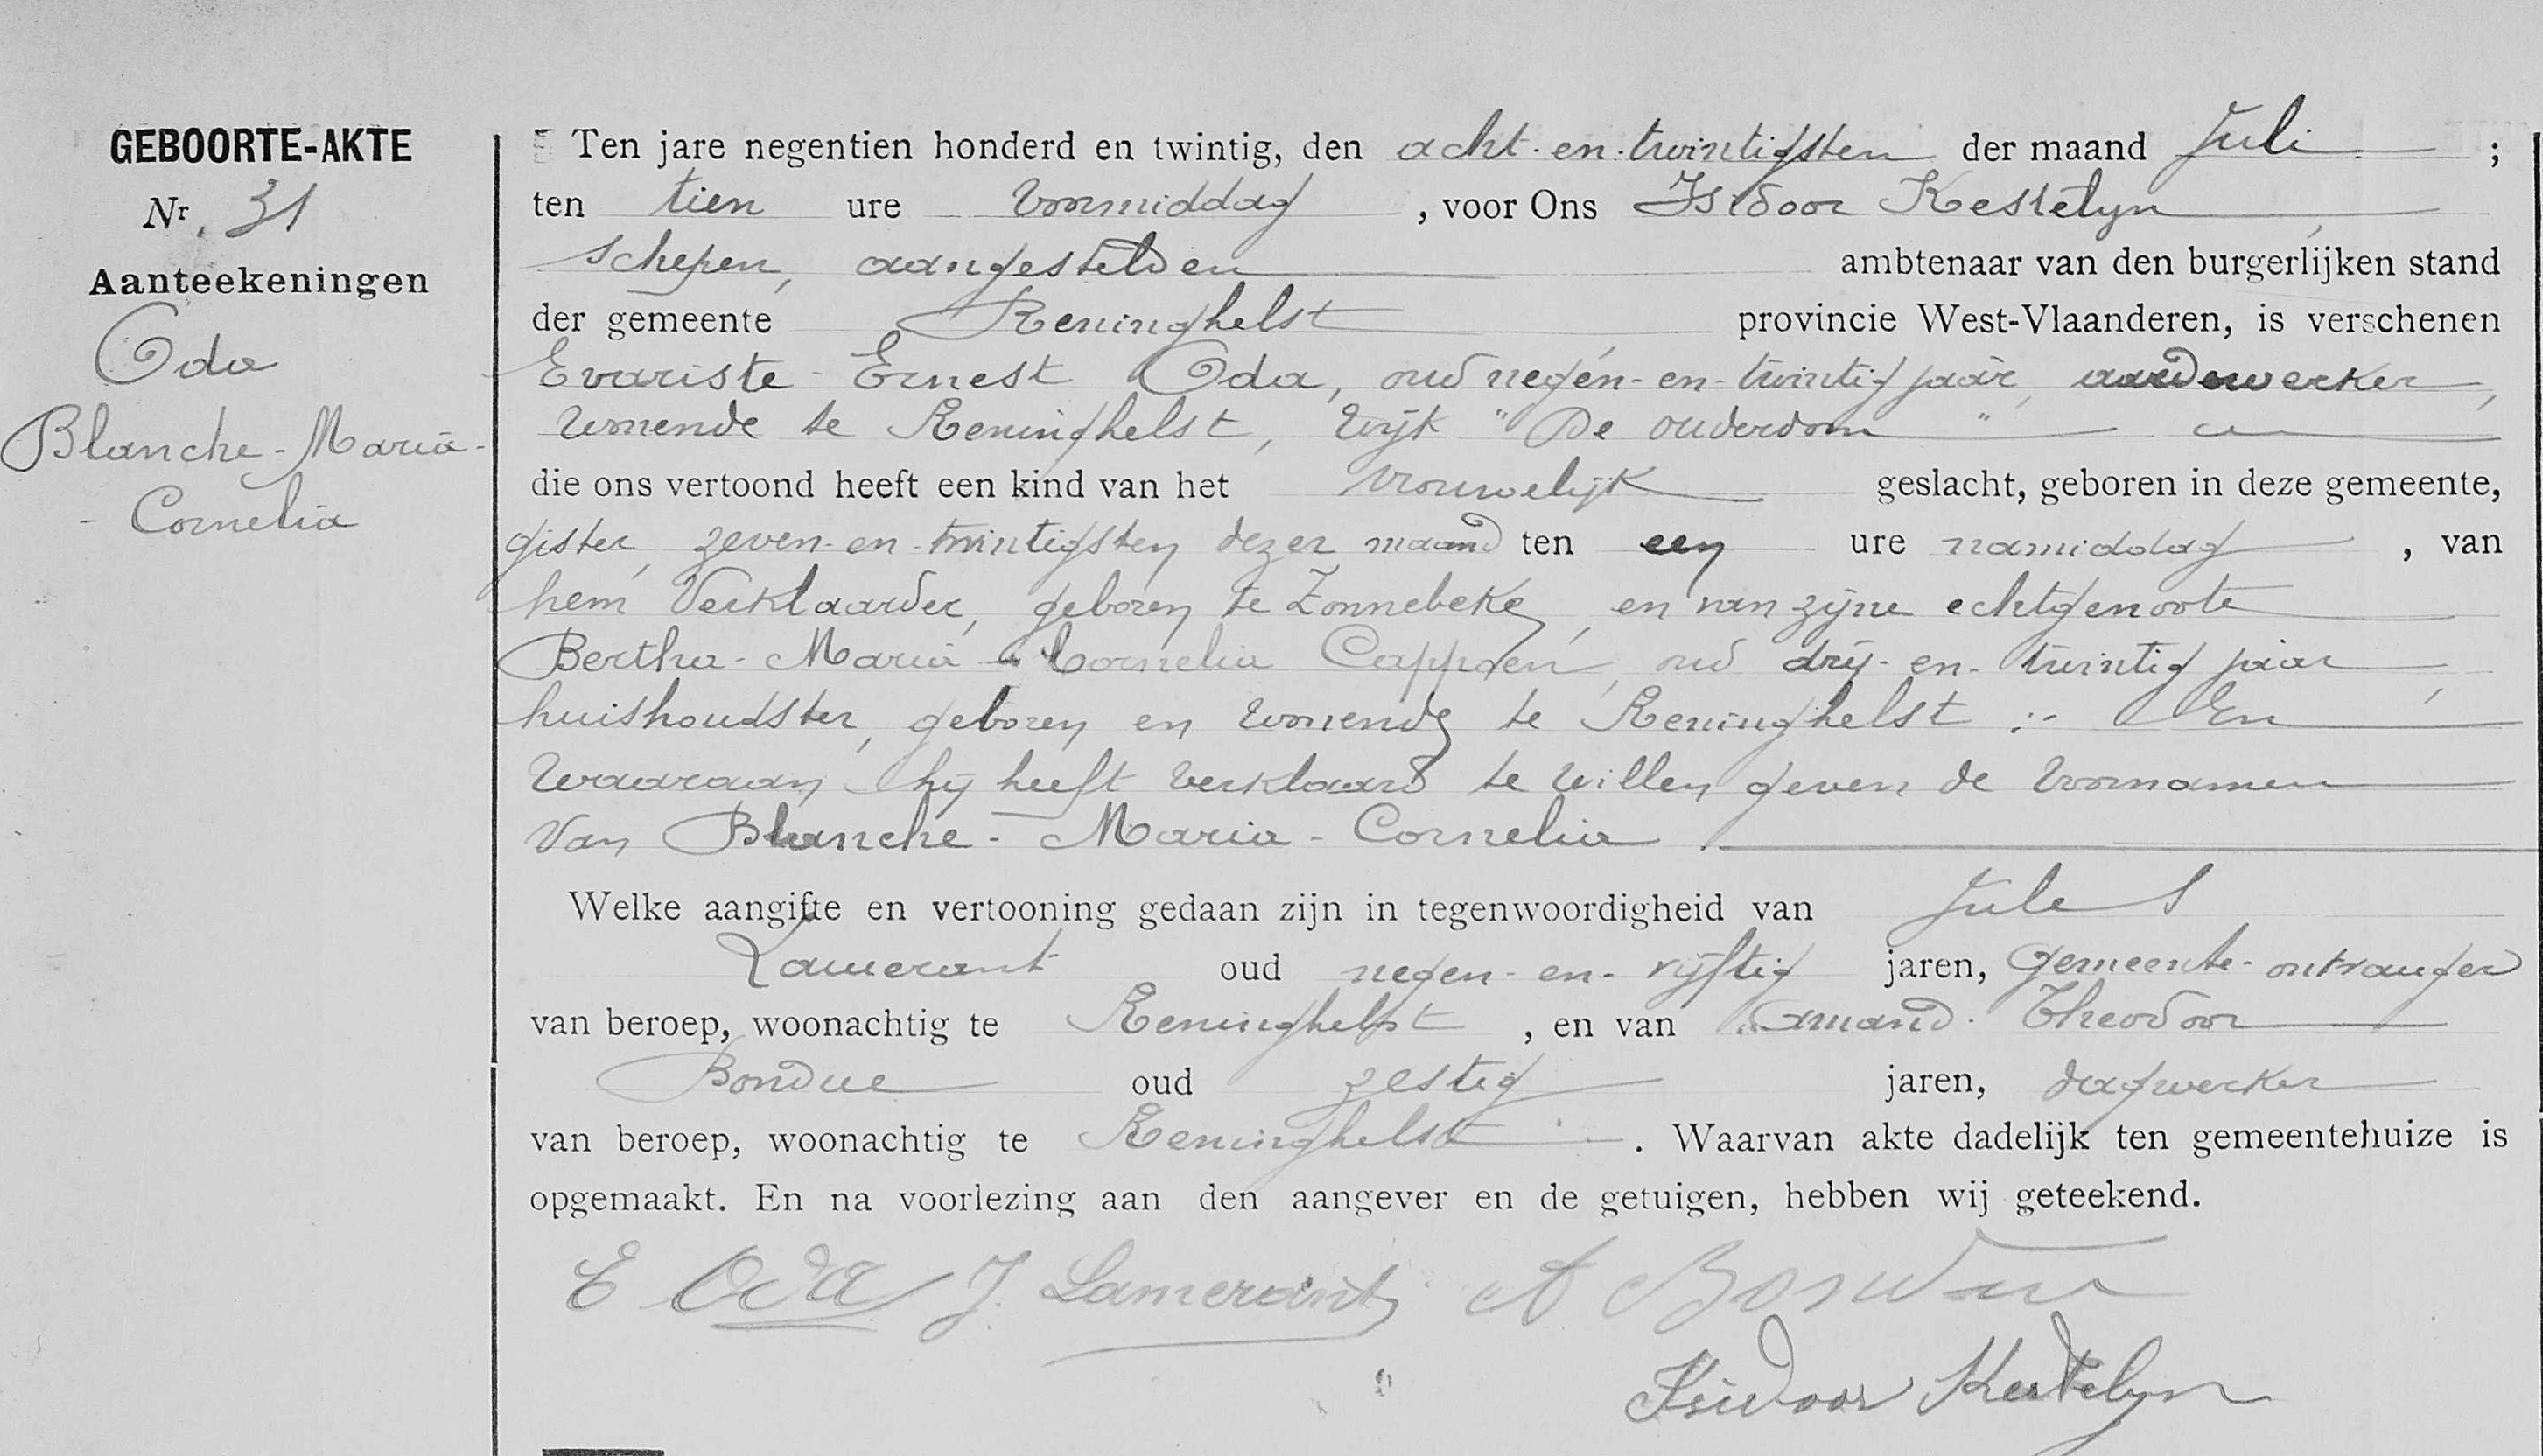 GEBOORTE-AKTE
Nr. 31
Aanteekeningen
Oda
Blanche-Maria-
- Cornelia
Ten jare negentien honderd en twintig, den acht-en-twintigsten der maand Juli ;
ten tien ure voormiddag , voor Ons Isidoor Kestelyn
schepen, aangestelden ambtenaar van den burgerlijken stand
der gemeente Reninghelst provincie West-Vlaanderen, is verschenen
Evariste Ernest Oda, oud negen-en-twintig jaar, aardewerker,
wonende te Reninghelst, wijk "De ouderdom"
die ons vertoond heeft een kind van het vrouwelijk geslacht, geboren in deze gemeente,
gister, zeven-en-twintigsten dezer maand ten een ure namiddag , van
hem verklaarder, geboren te Zonnebeke, en van zijne echtgenoote
Bertha-Maria-Cornelia Cappoen, oud drij-en-twintig jaar,
huishoudster, geboren en wonende te Reninghelst :- En
waaraan hij heeft verklaard te willen geven de voornamen
van Blanche-Maria-Cornelia.
Welke aangifte en vertooning gedaan zijn in tegenwoordigheid van Jules
Lamerant oud negen-en-vijftig jaren, gemeente-ontvanger
van beroep, woonachtig te Reninghelst , en van Amand Theodoor
Bondue oud zestig jaren, dagwerker
van beroep, woonachtig te Reninghelst . Waarvan akte dadelijk ten gemeentehuize is
opgemaakt. En na voorlezing aan den aangever en de getuigen, hebben wij geteekend.
E Oda J. Lamerant A Bondue
Isidoor Kestelyn